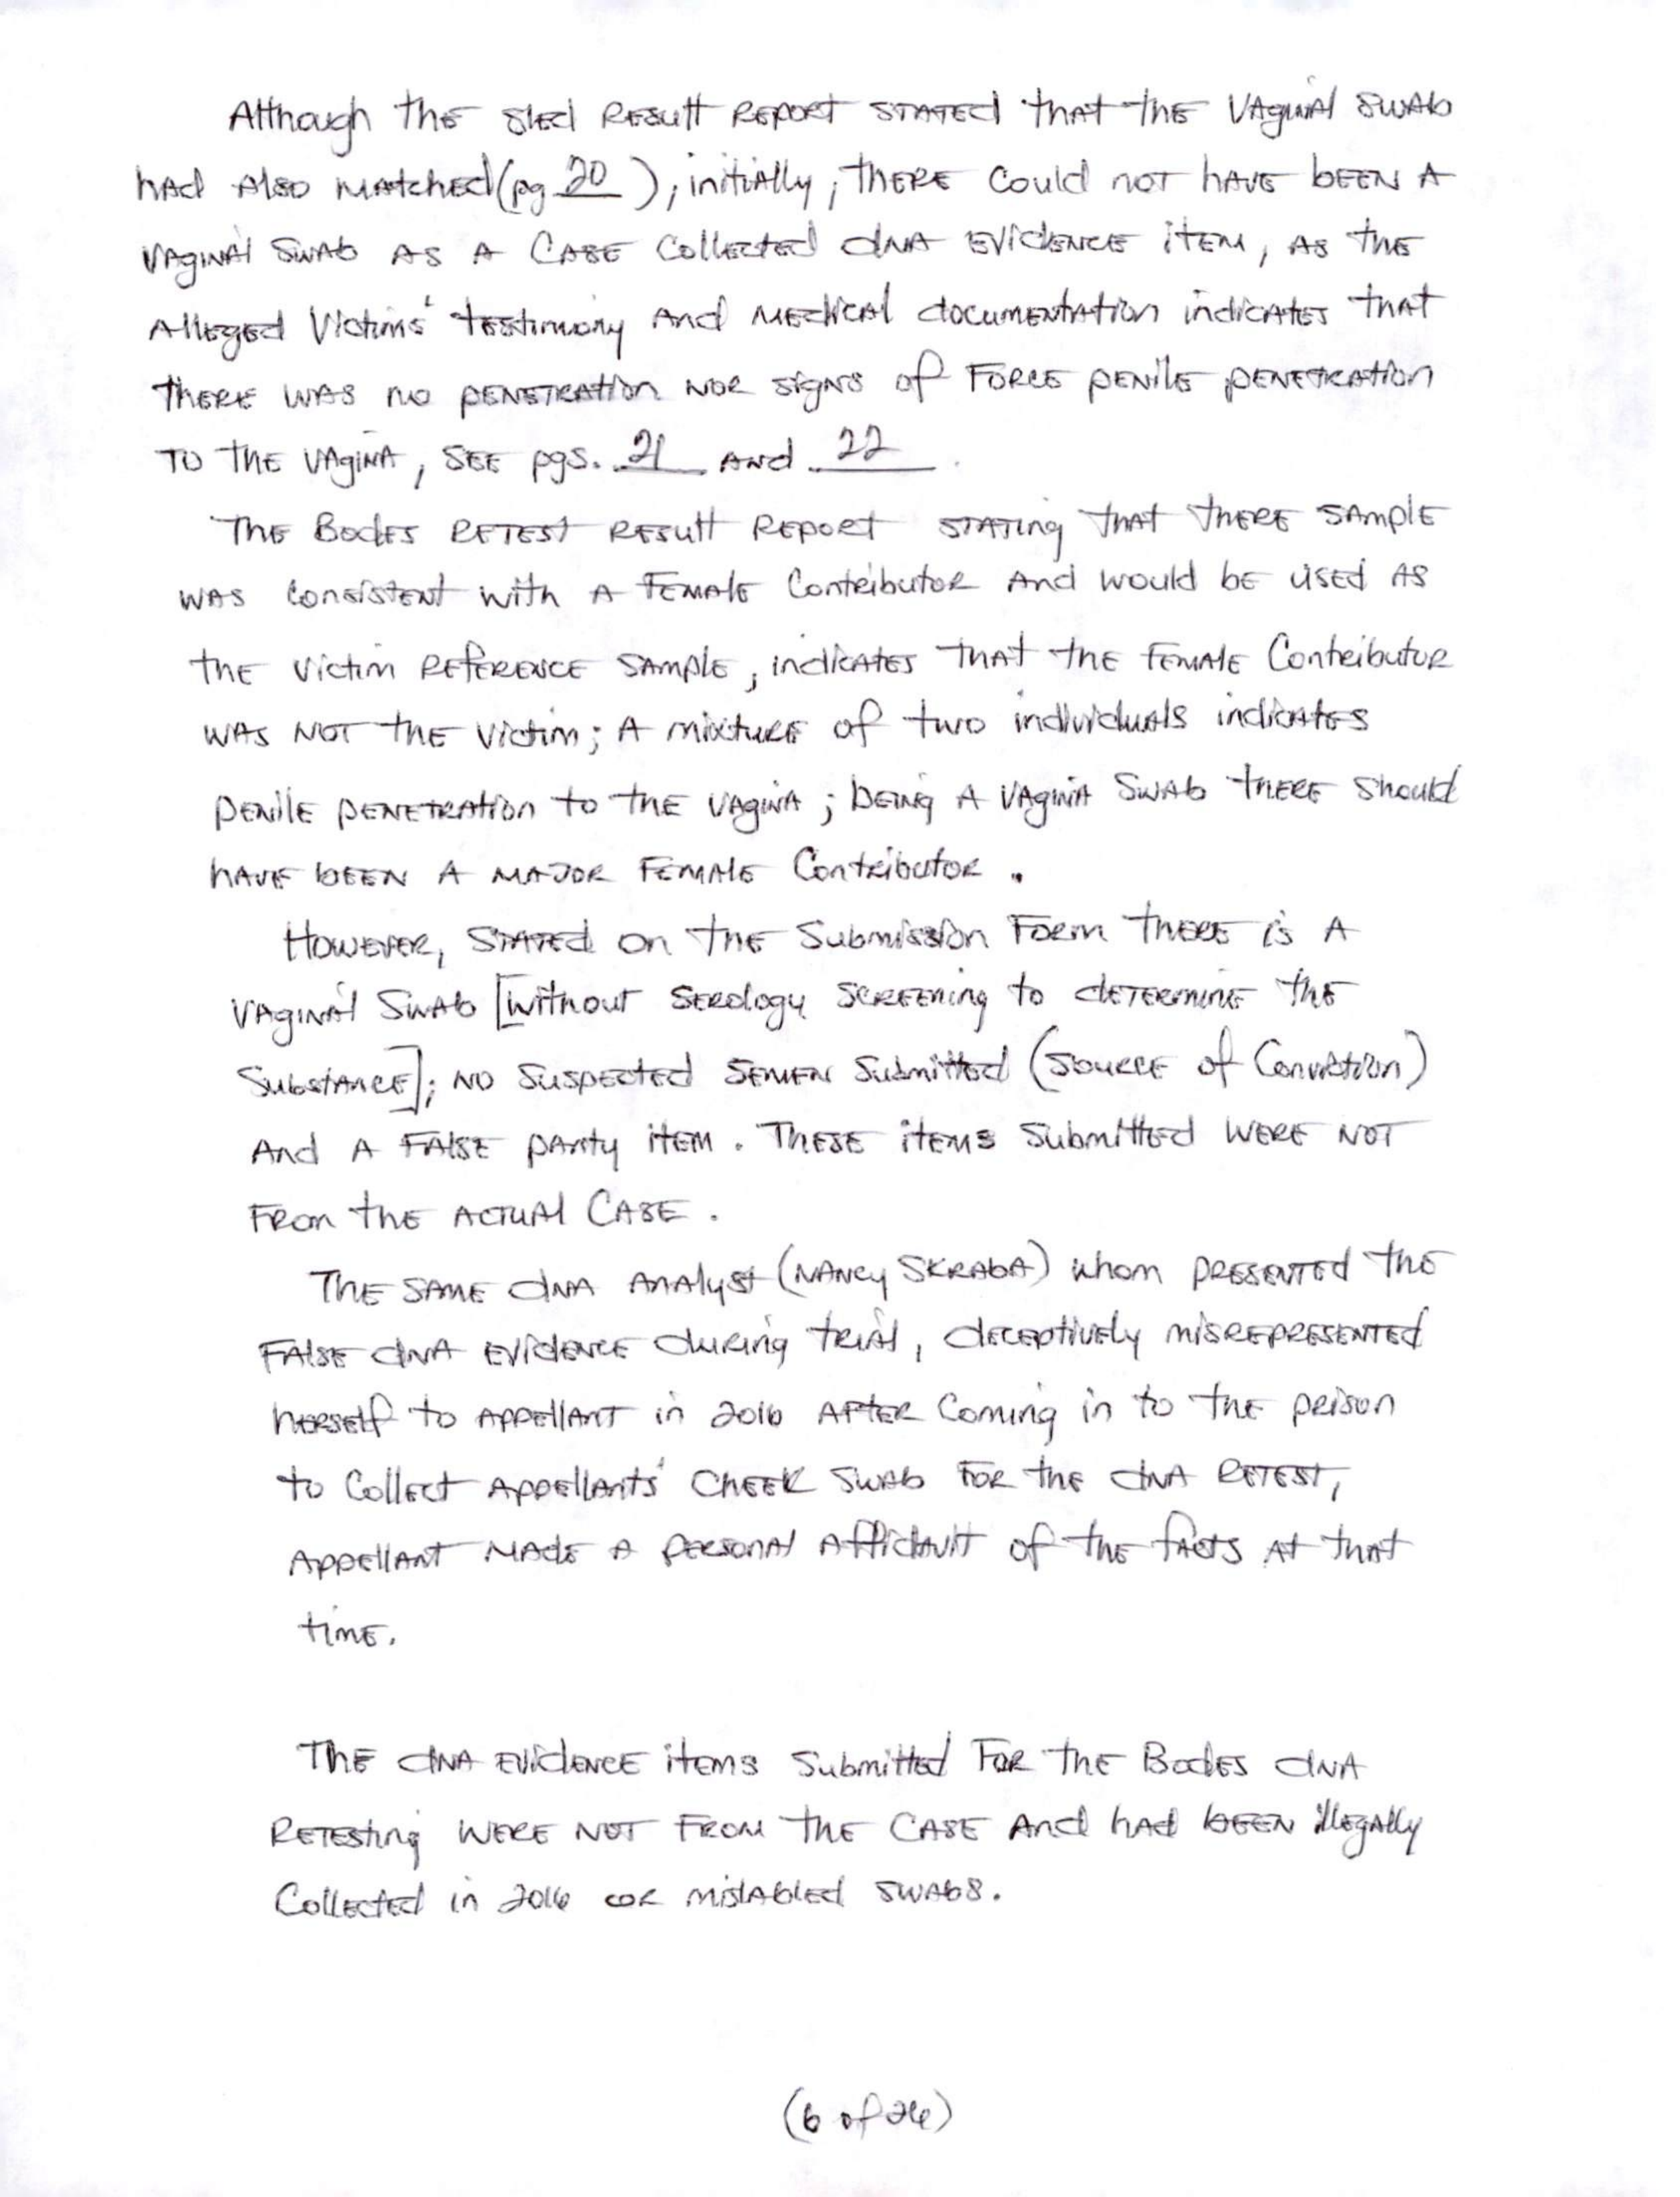 Although the sled Result Report stated that the vaginal swab
had also matched (pg 20 ); initially, there could not have been a
vaginal swab as a case collected dna evidence item, as the
alleged victims' testimony and medical documentation indicates that
there was no penetration nor signs of force penile penetration
to the vagina, see pgs. 21 and 22 .
The Bodes retest result report stating that there sample
was consistent with a female contributor and would be used as
the victim reference sample, indicates that the female contributor
was not the victim; a mixture of two individuals indicates
penile penetration to the vagina; being a vagina swab there should
have been a major female contributor.
However, stated on the submission form there is a
vaginal swab [without serology screening to determine the
substance]; no suspected semen submitted (source of conviction)
and a false panty item. These items submitted were not
from the actual case.
The same dna analyst (Nancy Skraba) whom presented the
false dna evidence during trial, deceptively misrepresented
herself to appellant in 2016 after coming in to the prison
to collect appellants' cheek swab for the dna retest,
appellant made a personal affidavit of the facts at that
time.
The dna evidence items submitted for the Bodes dna
retesting were not from the case and had been illegally
collected in 2016 or mislabled swabs.
(6 of 26)